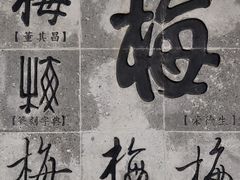 梅 梅
【董其昌】
梅
【篆刻字典】 【宋德生】
梅 梅 梅